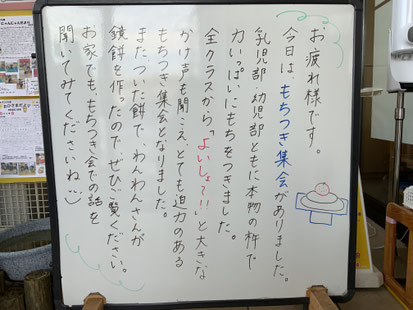 お疲れ様です。
今日は、もちつき集会がありました。
乳児部・幼児部ともに本物の杵で
力いっぱいにもちをつきました。
全クラスから「よいしょ～!!」と大きな
かけ声も聞こえ、とても迫力のある
もちつき集会となりました。
また、ついた餅で、わんわんさんが
鏡餅を作ったので、ぜひご覧ください。
お家でも、もちつき会での話を
聞いてみてくださいね。